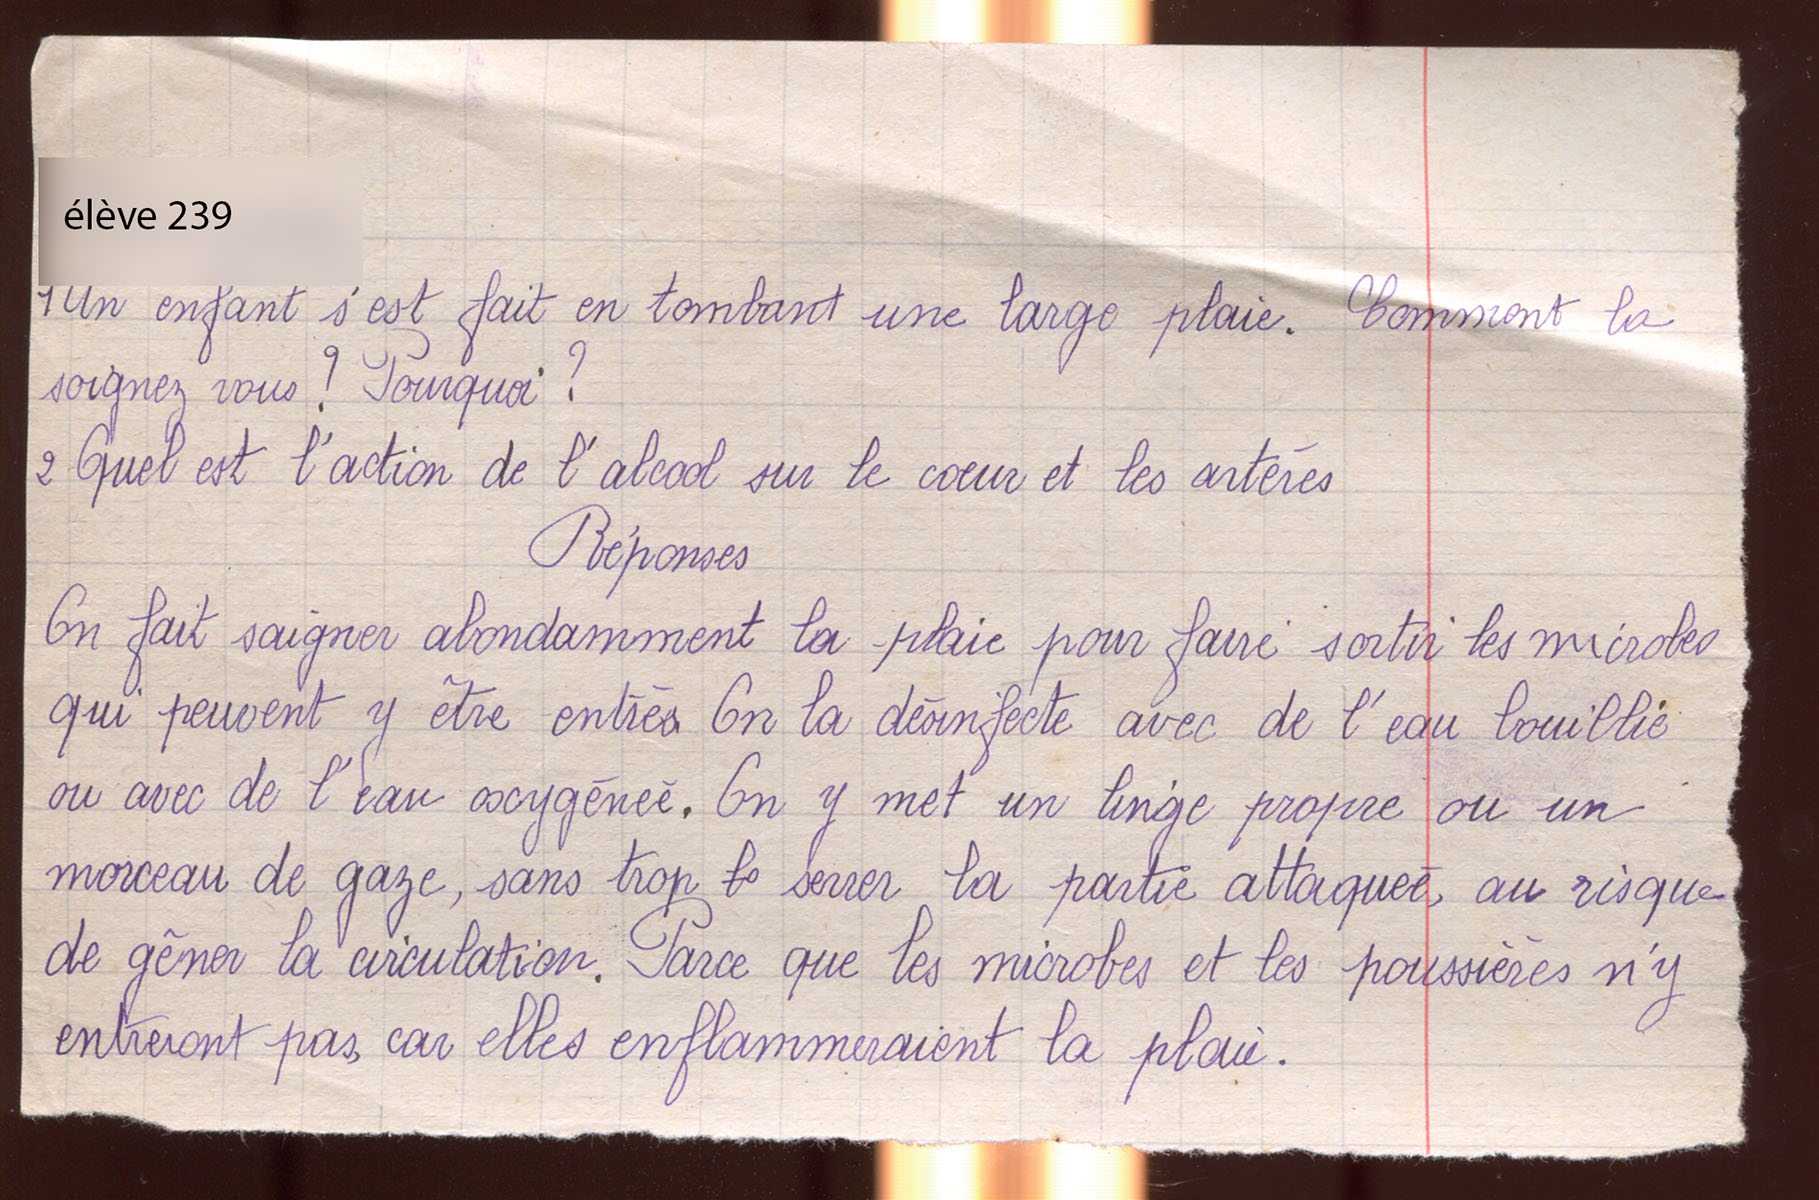 élève 239
1 Un enfant s'est fait en tombant une large plaie. Comment la
soignez vous ? Pourquoi ?
2 Quel est l'action de l'alcool sur le cœur et les artères
Réponses
On fait saigner abondamment la plaie pour faire sortir les microbes
qui peuvent y être entrés On la désinfecte avec de l'eau bouillie
ou avec de l'eau oxygénée. On y met un linge propre ou un
morceau de gaze, sans trop serrer la partie attaquée, au risque
de gêner la circulation. Parce que les microbes et les poussières n'y
entreront pas, car elles enflammeraient la plaie.